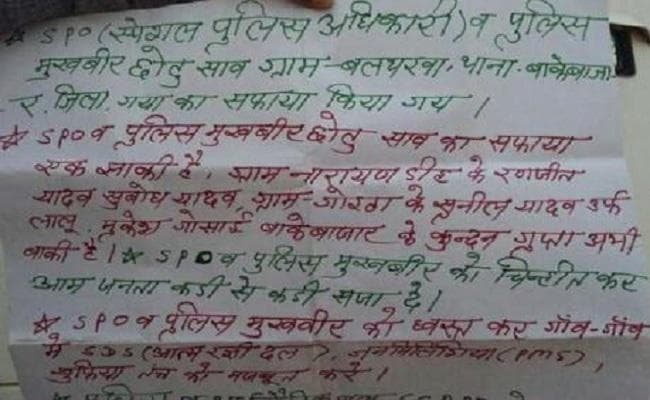 * SPO (स्पेशल पुलिस अधिकारी) व पुलिस
मुखबीर छोटु साव ग्राम-बलथरवा, थाना-बांकेबाजा-
र, जिला, गया का सफाया किया गय ।
* SPO व पुलिस मुखबीर छोटु साव का सफाया
एक झांकी है, ग्राम-नारायण डीह के रणजीत
यादव सुबोध यादव, ग्राम-गोइठा के सुनील यादव उर्फ
लालू, मुकेश गोसाई बांकेबाजार के कुन्दन गुप्ता अभी
बाकी है । * SPO व पुलिस मुखबीर को चिन्हीत कर
आम जनता कडी से कडी सजा दें ।
* SPO व पुलिस मुखबीर को ध्वस्त कर गाँव-गाँव
में SDS (आत्म रक्षी दल), जनमिलिशिया (PMS),
खुफिया तंत्र को मजबूत करें ।